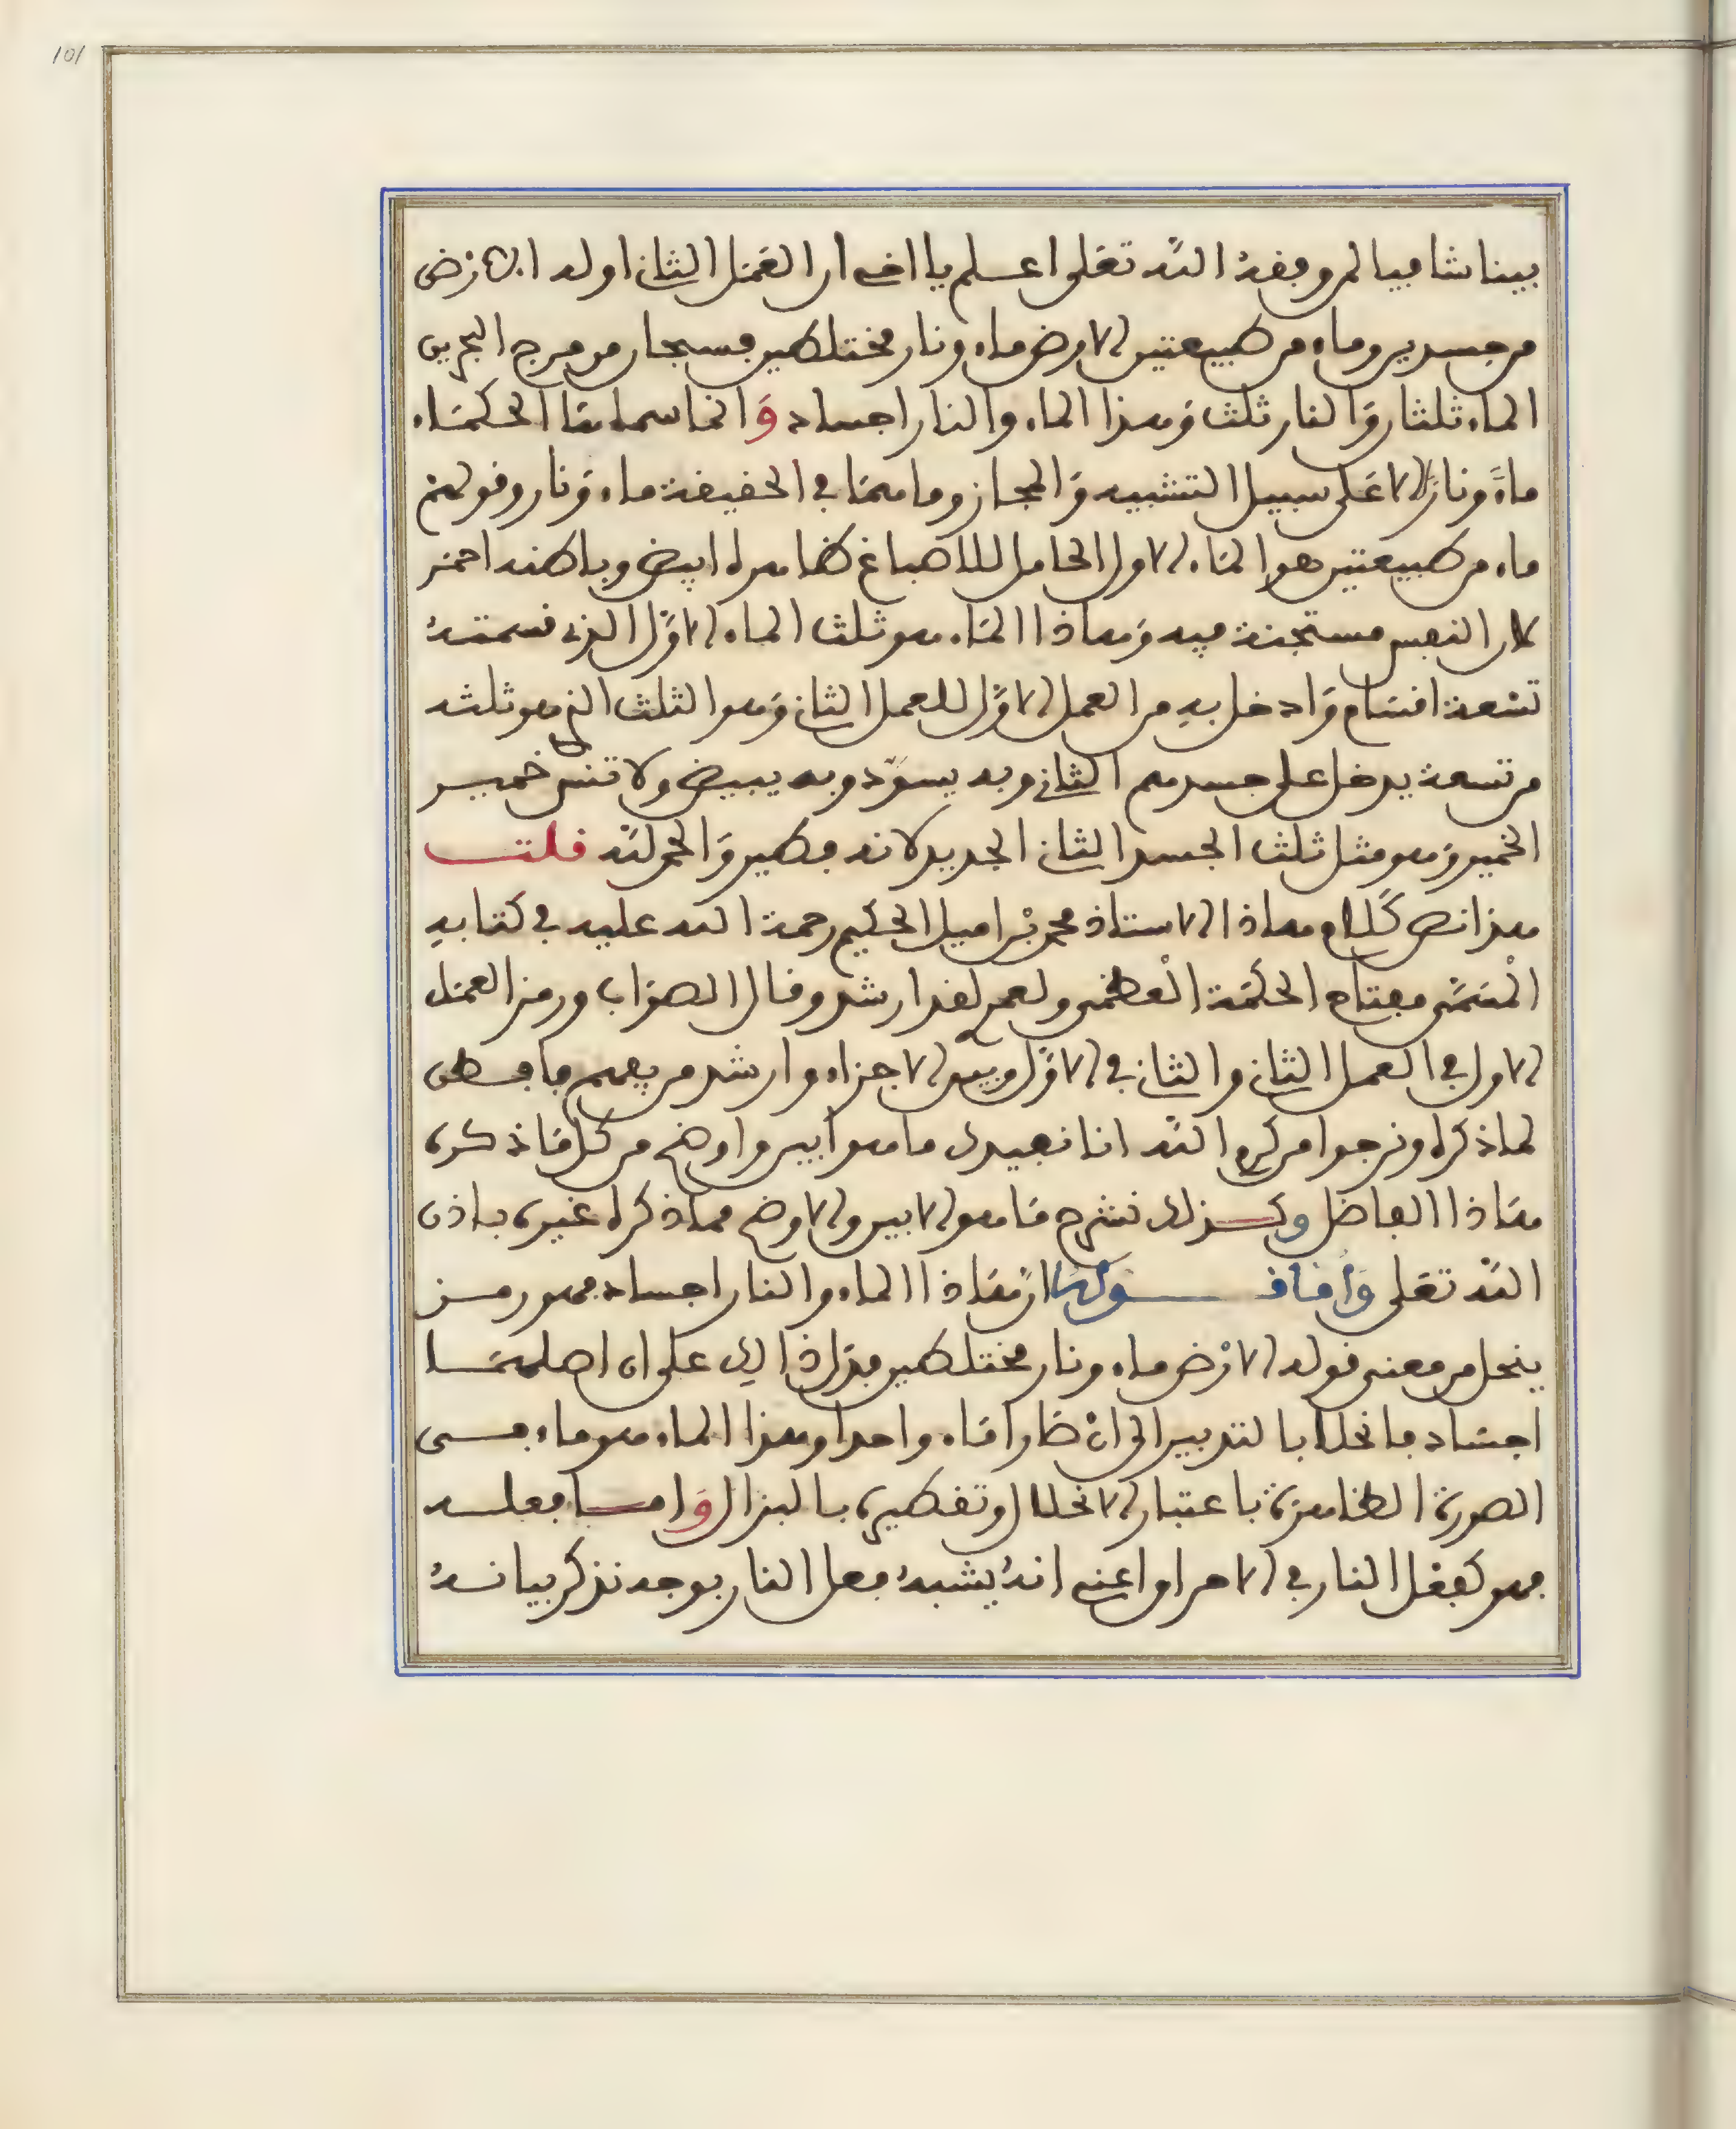 101
بينا شافيا لمن وفقه الله تعلى اعلم يا اخي ان العمل الثاني اوله الارض
من جسدين وماء من طبيعتين الارض ماء ونار مختلطين فسبحان من مرج البحرين
الماء ثلثان والنار ثلث وهذا الماء والنار اجساد وانما سماها الحكماء
ماءً ونارًا الا على سبيل التشبيه والمجاز وما هما في الحقيقة ماء ونار وقولهم
ماء من طبيعتين هو الماء الاول الحامل للاصباغ ظاهره ابيض وباطنه احمر
لان النفس مستجنة فيه وهاذا الماء هو ثلث الماء الاول الذي قسمته
تسعة اقسام وادخل به من العمل الاول للعمل الثاني وهو الثلث الذي هو ثلثه
من تسعة يدخل على جسدهم الثاني وبه يسوّد وبه يبيض ولا تنس خمير
الخمير وهو مثل ثلث الجسد الثاني الجديد لانه فطير والحمد لله قلت
هذا نص كلام هاذا الاستاذ محمد بن اميل الحكيم رحمة الله عليه في كتابه
المسمى مفتاح الحكمة العظمى ولعمري لقد ارشد وقال الصواب ورمز العمل
الاول في العمل الثاني والثاني في الاول وبين الاجزاء وارشد من يفهم ما فطن
لما ذكره ونرجوا من كرم الله انا نفيدك ما هو ابين واوضح من كل ما ذكره
هاذا الفاضل وكذلك نشرح ما هو الابين والاوضح مما ذكره غيره باذن
الله تعلى وأما قوله ان هاذا الماء والنار اجساد فهو رمز
ينحل من معنى قوله الارض ماء ونار مختلطين فدل ذالك على ان اصلهما
اجساد فانحلا بالتدبير الى ان صارا ماء واحدا وهذا الماء هو ماء في
الصورة الظاهرة باعتبار الانحلال وتقطيره بالبزال وأما فعله
فهو كفعل النار في الاحراق اعني انه يشبه فعل النار بوجه نذكر بيانه